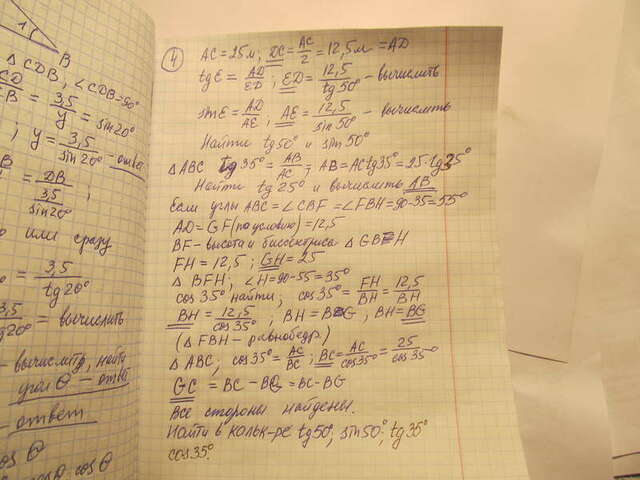 1γ
B
△CDB, ∠CDB=90°
CD = 3,5 = sin20°
y
; y = 3,5 - ответ
sin20°
= DB ;
3,5
sin20°
или сразу
= 3,5
tg20°
3,5 = вычислить
tg20°
- вычислить, найти
угол θ - ответ
- ответ
cos θ
④ AC = 25м; DC = AC/2 = 12,5м = AD
tg E = AD/ED; ED = 12,5/tg50° - вычислить
sin E = AD/AE; AE = 12,5/sin50° - вычислить
Найти tg50° и sin50°
△ABC tg35° = AB/AC; AB = AC tg35° = 25·tg35°
Найти tg25° и вычислить AB
Если углы ABC = ∠CBF = ∠FBH = 90-35 = 55°
AD = GF (по условию) = 12,5
BF - высота и биссектриса △GBH
FH = 12,5; GH = 25
△BFH; ∠H = 90-55 = 35°
cos35° найти; cos35° = FH/BH = 12,5/BH
BH = 12,5/cos35°; BH = BG; BH = BG
(△FBH - равнобедр.)
△ABC; cos35° = AC/BC; BC = AC/cos35° = 25/cos35°
GC = BC - BG = BC - BG
Все стороны найдены.
Найти в кальк-ре tg50°; sin50°; tg35°
cos35°.